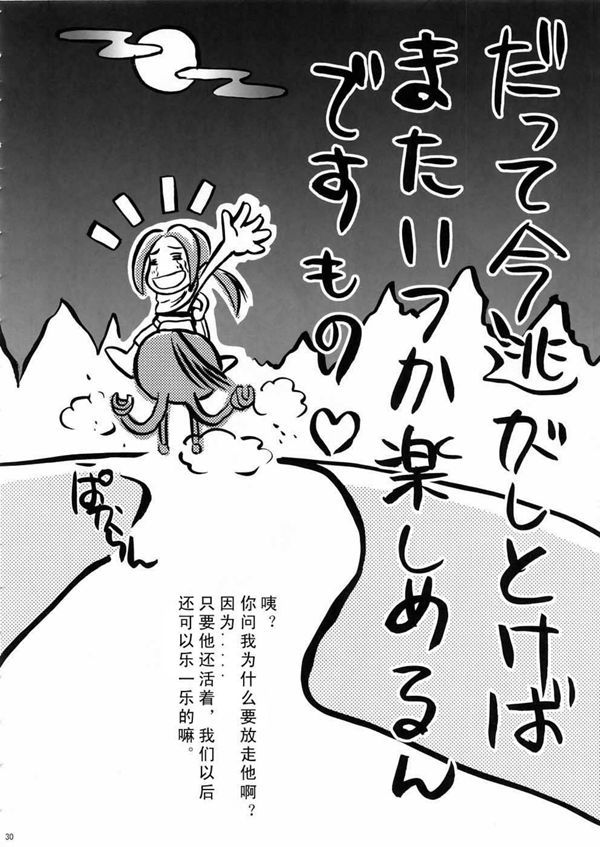 だって今逃がしとけば
またいつか楽しめるん
ですもの♡
ぱからん
咦？
你问我为什么要放走他啊？
因为....
只要他还活着，我们以后
还可以乐一乐的嘛。
30